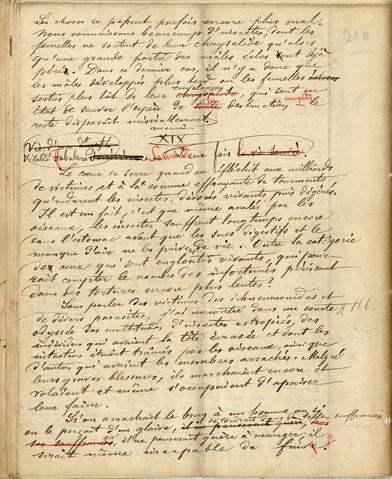 210
Les choses se passent parfois encore plus mal.
Nous connaissons beaucoup d'insectes, dont les
femelles ne sortent de leur chrysalide qu'alors,
qu'une grande partie des mâles éclos ont déjà
péri. Dans ce dernier cas, il n'y a donc que
les mâles développés plus tard ou les femelles
sorties plus tôt de leur enveloppe, qui sont en
état de sauver l'espèce de destruction complète. le
reste disparaît misérablement.
XIX
Vitalité
fois
Le cœur se serre quand on réfléchit aux milliards
de victimes et à la somme effrayante de tourments
qu'endurent les insectes, dévorés vivants puis digérés.
Il est un fait, c'est que même avalés par les
oiseaux, les insectes souffrent longtemps encore
dans l'estomac avant que les sucs digestifs et le
manque d'air ne les prive de vie. Outre la catégorie
de ceux qu'on sont engloutis vivants, qui pour-
rait compter le nombre des infortunés périssant
dans des tortures encore plus lentes?
Sans parler des victimes des ichneumonides et
de divers parasites, j'ai rencontré dans ma courte
odyssée des multitudes d'insectes estropiés, des
individus qui avaient la tête écrasée et dont les
intestins étaient traînés par les oiseaux, ainsi que
d'autres qui avaient les membres arrachés. Malgré
leurs graves blessures, ils marchaient encore et
volaient et même s'occupaient d'apaiser
leur faim.
Si on arrachait le bras à un homme ou si
on le perçait d'un glaive, souffrances
il ne penserait guère à manger; il
serait même incapable de fuir.